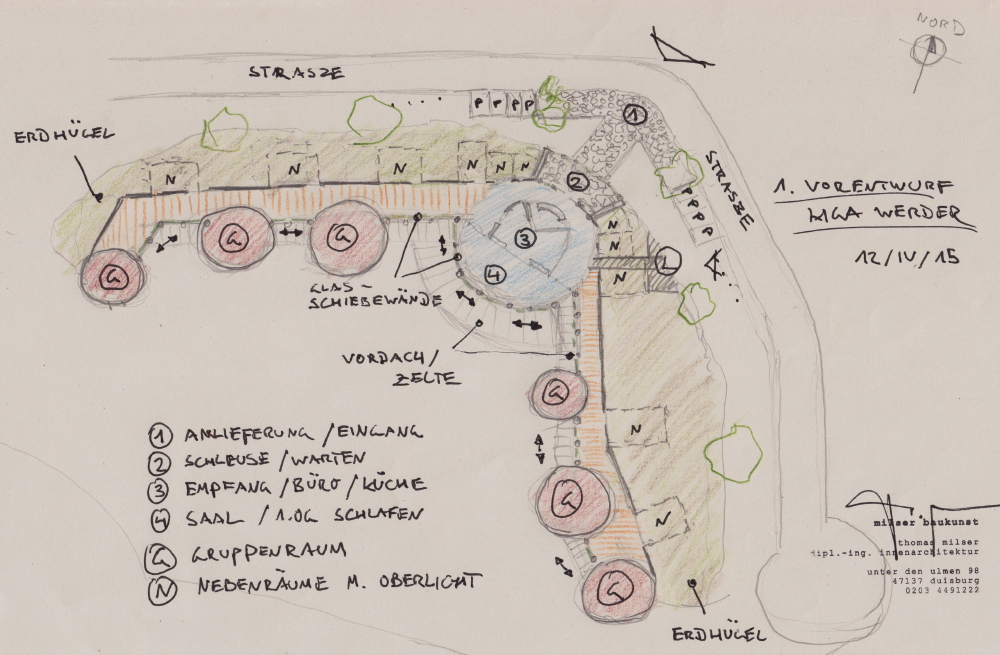 NORD
STRASZE
P P P P
ERDHÜGEL
1
STRASZE
N N N N N N
2
P P P P
1. VORENTWURF
KIGA WERDER
12/IV/15
N
N
N
3
4
L
G
G
G
GLAS-
SCHIEBEWÄNDE
VORDACH/
ZELTE
G
N
G
N
G
ERDHÜGEL
1 ANLIEFERUNG /EINGANG
2 SCHLEUSE /WARTEN
3 EMPFANG /BÜRO /KÜCHE
4 SAAL /1.OG SCHLAFEN
G GRUPPENRAUM
N NEBENRÄUME M. OBERLICHT
milser baukunst
thomas milser
dipl.-ing. innenarchitektur
unter den ulmen 98
47137 duisburg
0203 4491222